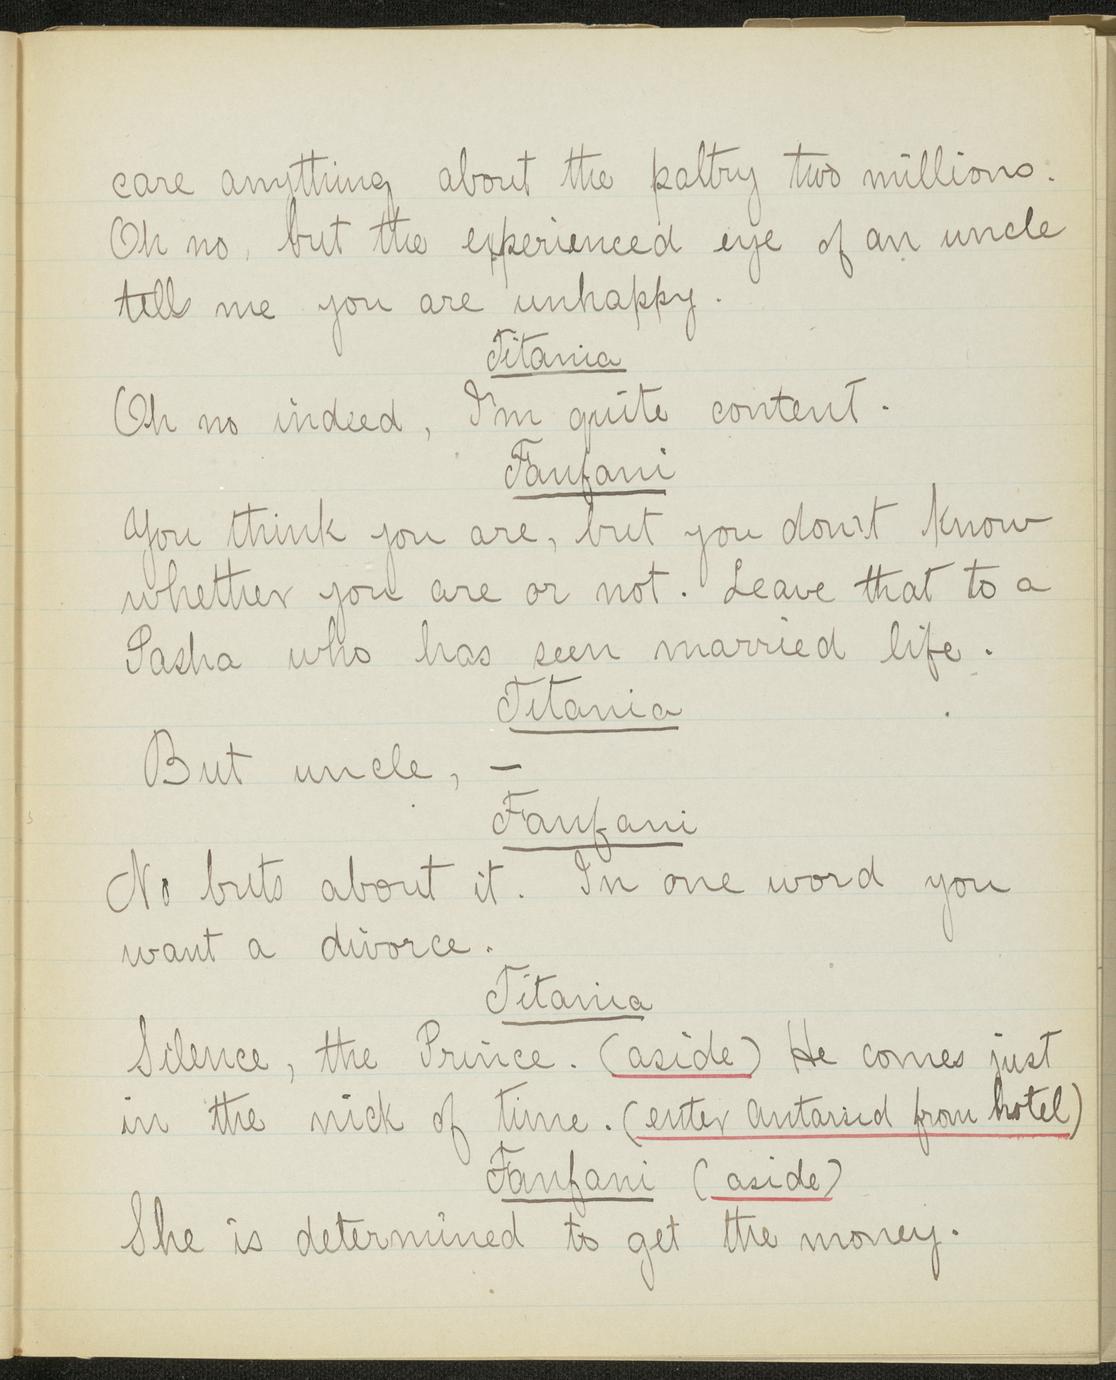 care anything about the paltry two millions.
Oh no, but the experienced eye of an uncle
tells me you are unhappy.
Titania
Oh no indeed, I'm quite content.
Fanfani
You think you are, but you don't know
whether you are or not. Leave that to a
Pasha who has seen married life.
Titania
But uncle, —
Fanfani
No buts about it. In one word you
want a divorce.
Titania
Silence, the Prince. (aside) He comes just
in the nick of time. (enter Antarsid from hotel)
Fanfani (aside)
She is determined to get the money.